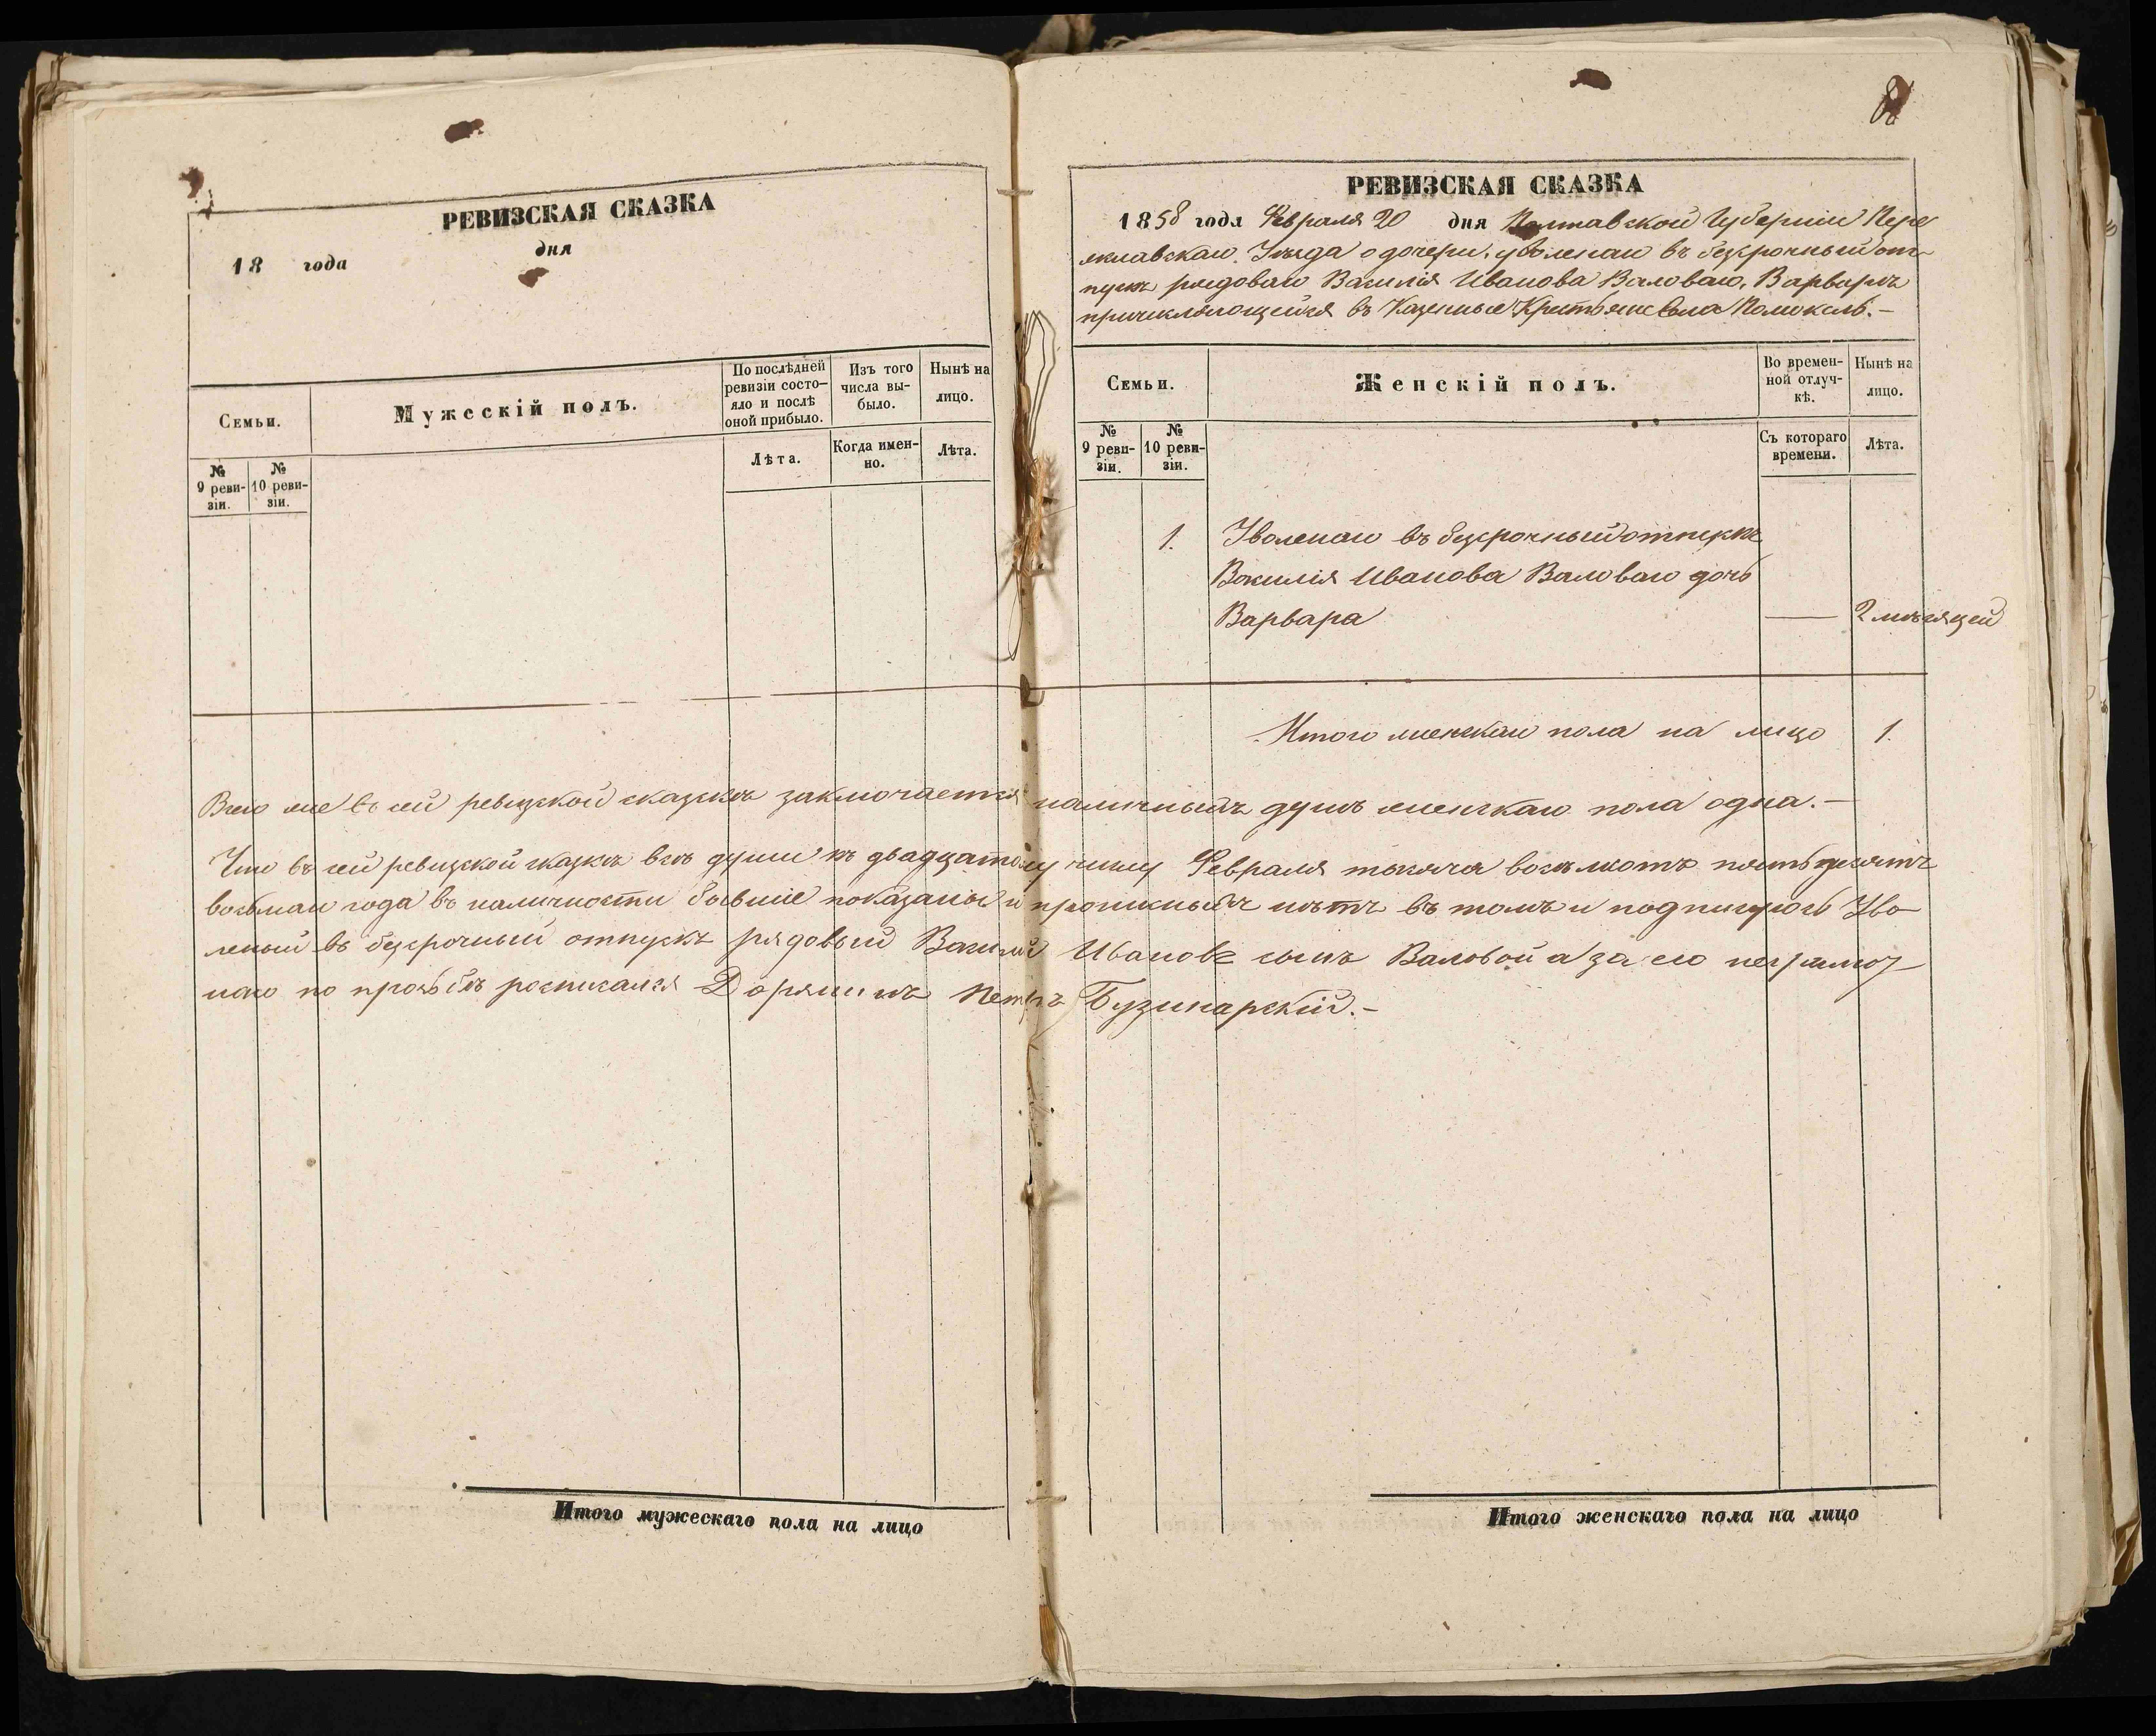 РЕВИЗСКАЯ СКАЗКА
18 года дня
Семьи.
Мужескій полъ.
По послѣдней ревизіи состо-
яло и послѣ оной прибыло.
Изъ того числа вы-
было.
Нынѣ на лицо.
№ 9 реви-
зіи.
№ 10 реви-
зіи.
Лѣта.
Когда имен-
но.
Лѣта.
РЕВИЗСКАЯ СКАЗКА
1858 года Февраля 20 дня Полтавской Губерніи Пере
яславскаго Уѣзда о дочери, уволенаго въ безсрочный от-
пускъ рядоваго Василія Иванова Валоваго, Варварѣ
причисляющейся въ Казенные Крестьяне Села Помоклѣ.-
Семьи.
Женскій полъ.
Во времен-
ной отлуч-
кѣ.
Нынѣ на лицо.
№ 9 реви-
зіи.
№ 10 реви-
зіи.
Съ котораго времени.
Лѣта.
1. Уволенаго въ безсрочный отпускъ
Василія Иванова Валоваго дочь
Варвара — 2 мѣсяцей
Итого женскаго пола на лицо 1.
Всего же въ сей ревизской сказкѣ заключается наличныхъ душъ женскаго пола одна.-
Что въ сей ревизской сказкѣ всѣ души къ двадцатому числу Февраля тысяча восемьсотъ пятьдесятъ
восьмаго года въ наличности бывшіе показаны и прописныхъ нѣтъ въ томъ и подписуюсь Уво
леный въ безсрочный отпускъ рядовый Василій Ивановъ сынъ Валовой а за его неграмот
наго по прозьбѣ росписался Дорянинъ Петръ Бузинарскій.-
Итого мужескаго пола на лицо
Итого женскаго пола на лицо